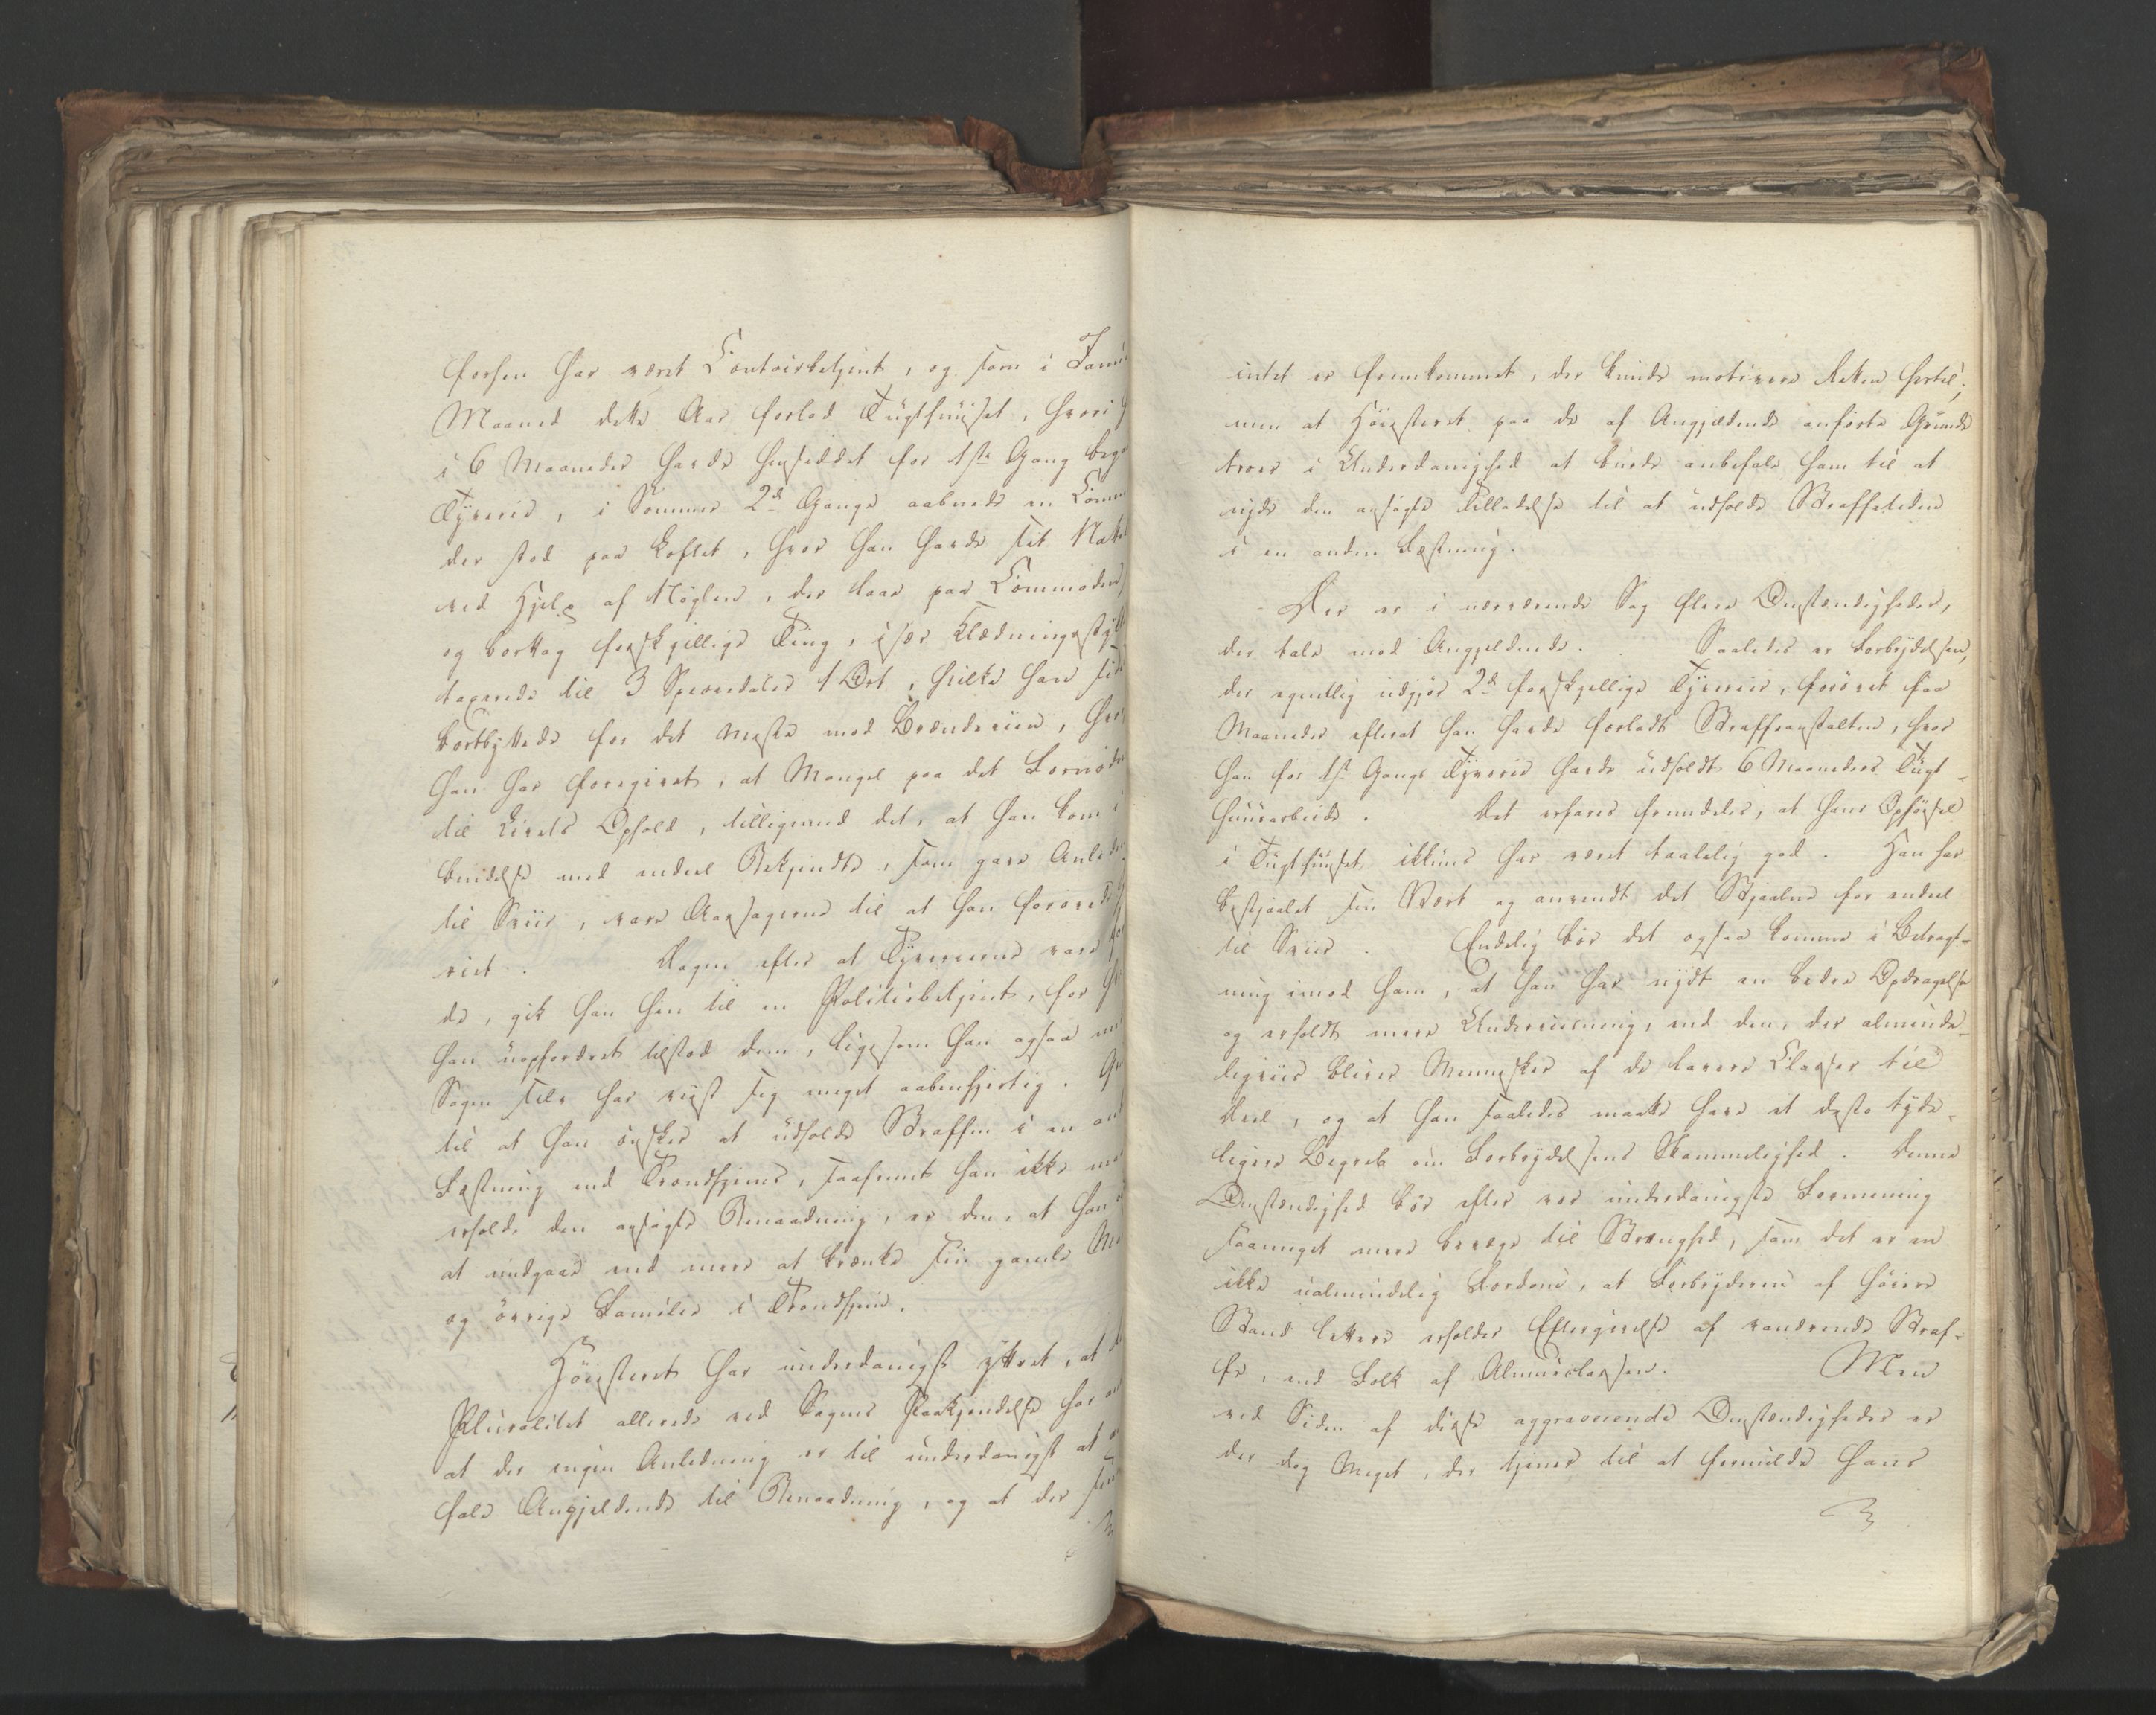 forhen har været Contoirbetjent, og som i Janu
Maaned dette Aar forlod Tugthuuset, hvori
i 6 Maaneder havde hensiddet for 1ste Gang beg
Tyverie, i Sommer 2de Gange aabnede en Comm
der stod paa Loftet, hvor han havde sit Natte
ved Hjelp af Nøglen, der laae paa Commoden,
og borttog forskjellige Ting, især Klædningsstyk
taxerede til 3 Speciedaler 1 Ort, hvilke han sid
bortbyttede for det meste mod Brændeviin, hvor
han har foregivet, at Mangel paa det Fornødne
til Livets Ophold, tilligemed det, at han kom i
bindelse med endeel Bekjendte, som gave Anled
til Sviir, vare Aarsagerne til at han forøvede
riet. Dagen efter at Tyverierne vare
de, gik han hen til en Politiebetjent, for
han uopfordret tilstod dem, ligesom han ogsaa
Sagen selv har viist sig meget aabenhjertig.
til at han ønsker at udholde Straffen i en
Fæstning end Trondhjems, saafremt han ikke
erholde den ansøgte Benaadning, er den, at han
at undgaae end mere at krænke sin gamle
og øvrige Familie i Trondhjem.
Høiesteret har underdanigst yttret, at
Pluralitet allerede ved Sagens Paakjendelse har
at der ingen Anledning er til underdanigst at
fale Angjeldende til Benaadning, og at der
intet er fremkommet, der kunde motivere Retten hertil;
men at Høiesteret paa de af Angjældende anførte Grunde
troer i Underdanighed at burde anbefale ham til at
nyde den ansøgte Tilladelse til at udholde Straffetiden
i en anden Fæstning.
Der er i nærværende Sag flere Omstændigheder,
der tale mod Angjeldende. Saaledes er Forbrydelsen,
der egentlig udgjør 2de forskjellige Tyverier, forøvet faa
Maaneder efterat han havde forladt Straffeanstalten, hvor
han for 1ste Gangs Tyverie havde udholdt 6 Maaneders Tugt-
huusarbeide. Det erfares fremdeles, at hans Opførsel
i Tugthuuset ikkuns har været taalelig god. Han har
bestjaalet sin Vært og anvendt det Stjaalne for endeel
til Sviir. Endelig bør det ogsaa komme i Betragt-
ning imod ham, at han har nydt en bedre Opdragelse
og erholdt mere Underviisning, end den, der alminde-
ligviis bliver Mennesker af de lavere Classer til
Deel, og at han saaledes maatte have et desto tyde-
ligere Begreb om Forbrydelsens Skammelighed. Denne
Omstændighed bør efter vor underdanigste Formening
saameget mere bevæge til Strenghed, som det er en
ikke ualmindelig Fordom, at Forbryderne af høiere
Stand lettere erholder Eftergivelse af vanærende Straf-
fe, end Folk af Almueclassen. Men
ved Siden af disse aggraverende Omstændigheder er
der dog Meget, der tjener til at formilde hans